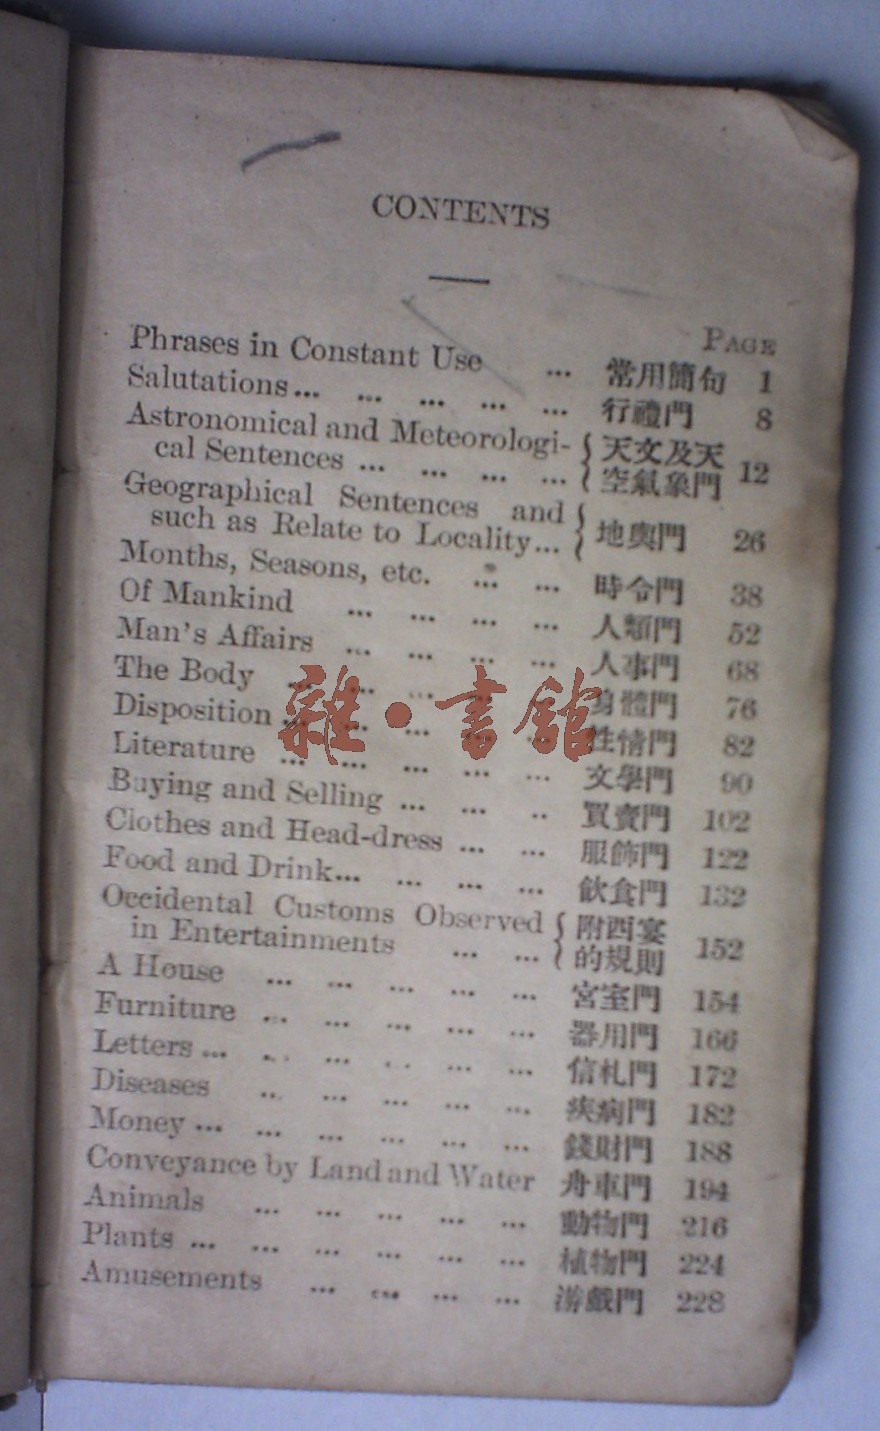 CONTENTS
PAGE
Phrases in Constant Use ... 常用簡句 1
Salutations... ... ... ... ... 行禮門 8
Astronomical and Meteorologi- { 天文及天
cal Sentences ... ... ... ... { 空氣象門 12
Geographical Sentences and {
such as Relate to Locality... { 地輿門 26
Months, Seasons, etc. ... ... 時令門 38
Of Mankind ... ... ... ... 人類門 52
Man's Affairs ... ... ... ... 人事門 68
The Body ... ... ... ... 身體門 76
Disposition ... ... ... ... ... 性情門 82
Literature ... ... ... ... ... 文學門 90
Buying and Selling ... ... .. 買賣門 102
Clothes and Head-dress ... ... 服飾門 122
Food and Drink... ... ... ... 飲食門 132
Occidental Customs Observed { 附西宴
in Entertainments ... ... { 的規則 152
A House ... ... ... ... ... 宮室門 154
Furniture ... ... ... ... ... 器用門 166
Letters ... ... ... ... ... ... 信札門 172
Diseases ... ... ... ... ... 疾病門 182
Money ... ... ... ... ... ... 錢財門 188
Conveyance by Land and Water 舟車門 194
Animals ... ... ... ... ... 動物門 216
Plants ... ... ... ... ... ... 植物門 224
Amusements ... ... ... ... 游戲門 228
雜·書館